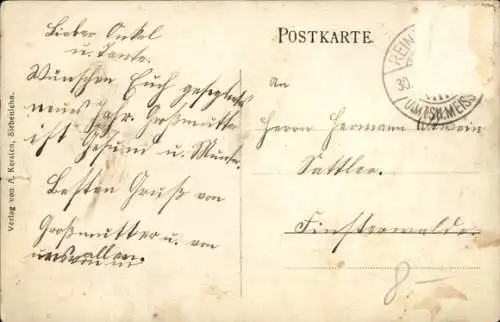 Lieber Onkel
u. Tante.
Wünschen Euch gesegnetes
neues Jahr. Großmutter
ist Gesund u. Munter.
Besten Gruß von
Großmutter u. von
uns allen.
POSTKARTE.
An
Herrn Hermann
Sattler.
Finsterwalde.
8-
REIN
30.
(AMTSH. MEISS
Verlag von A. Kersten, Siebenlehn.